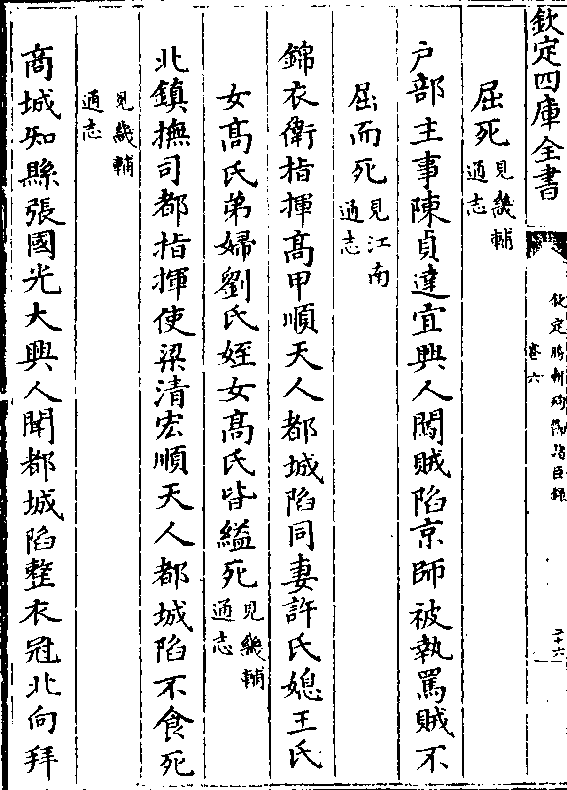 欽定四庫全書
欽定勝朝殉節諸臣錄
卷六
二十六
屈死見畿輔通志
户部主事陳貞達宜興人闖賊陷京師被執罵賊不
屈而死見江南通志
錦衣衛指揮髙甲順天人都城陷同妻許氏媳王氏
女髙氏弟婦劉氏姪女髙氏皆縊死見畿輔通志
北鎮撫司都指揮使梁清宏順天人都城陷不食死
見畿輔通志
商城知縣張國光大興人聞都城陷整衣冠北向拜